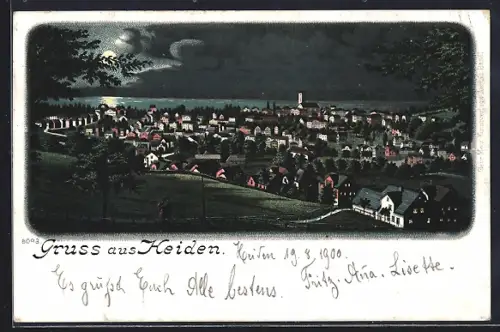 8003. Gruss aus Heiden. Heiden 19.8.1900.
Es grüßt Euch Alle bestens. Fritz. Lisette.